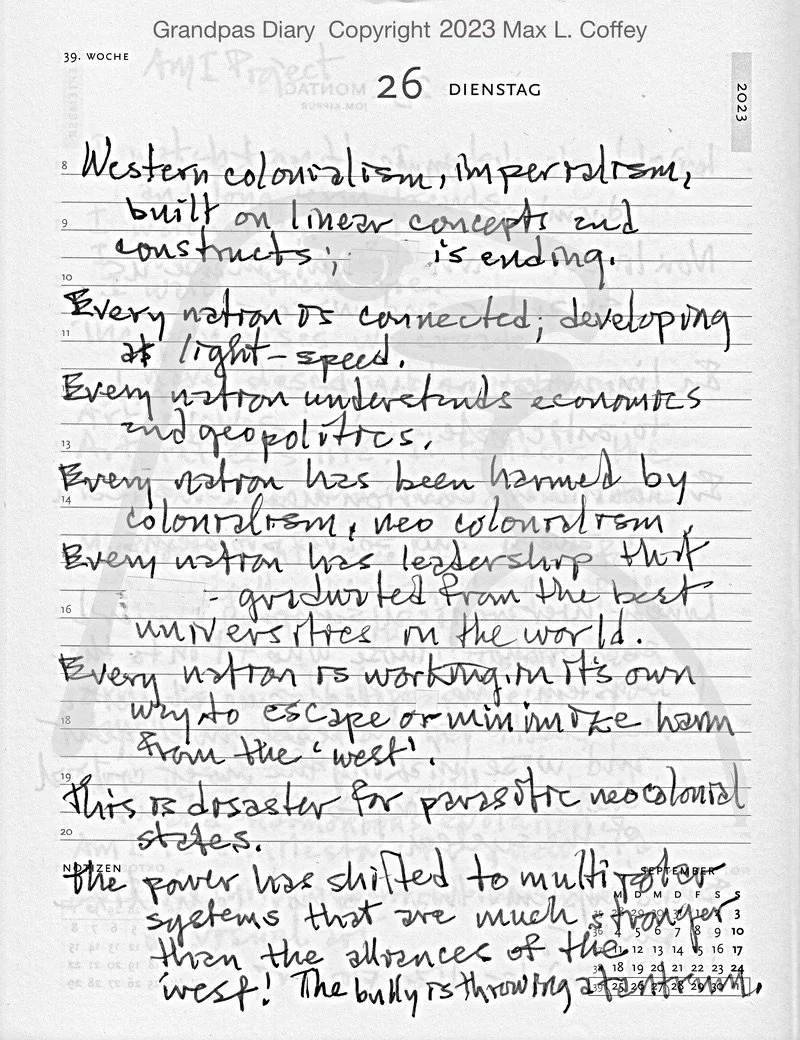 Grandpas Diary Copyright 2023 Max L. Coffey
39. WOCHE
26 DIENSTAG
2023
8 Western colonialism, imperialism,
built on linear concepts and
9
constructs; is ending.
10
Every nation is connected; developing
11
at light-speed.
Every nation understands economics
and geopolitics.
13
Every nation has been harmed by
14
colonialism, neo colonialism,
Every nation has leadership that
- graduated from the best
16
universities in the world.
Every nation is working in it's own
way to escape or minimize harm
18
from the 'west'.
19
This is disaster for parasitic neocolonial
20
states.
NOTIZEN
SEPTEMBER
The power has shifted to multipolar
M D M D F S S
systems that are much stronger
3
4 5 6 7 8 9 10
than the alliances of the
11 12 13 14 15 16 17
18 19 20 21 22 23 24
west! The bully is throwing a tantrum.
25 26 27 28 29 30